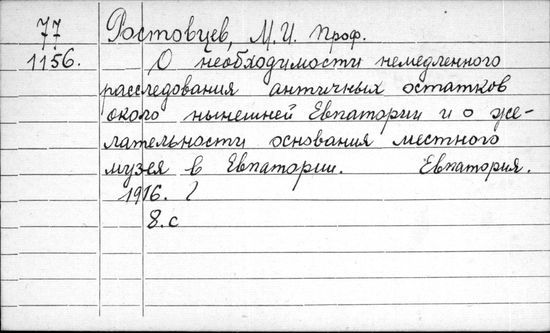 77 Ростовцев, М.И. Проф.
1156. О необходимости немедленного
расследования античных остатков
около нынешней Евпатории и о же-
лательности основания местного
музея в Евпатории. Евпатория.
1916.
8.с